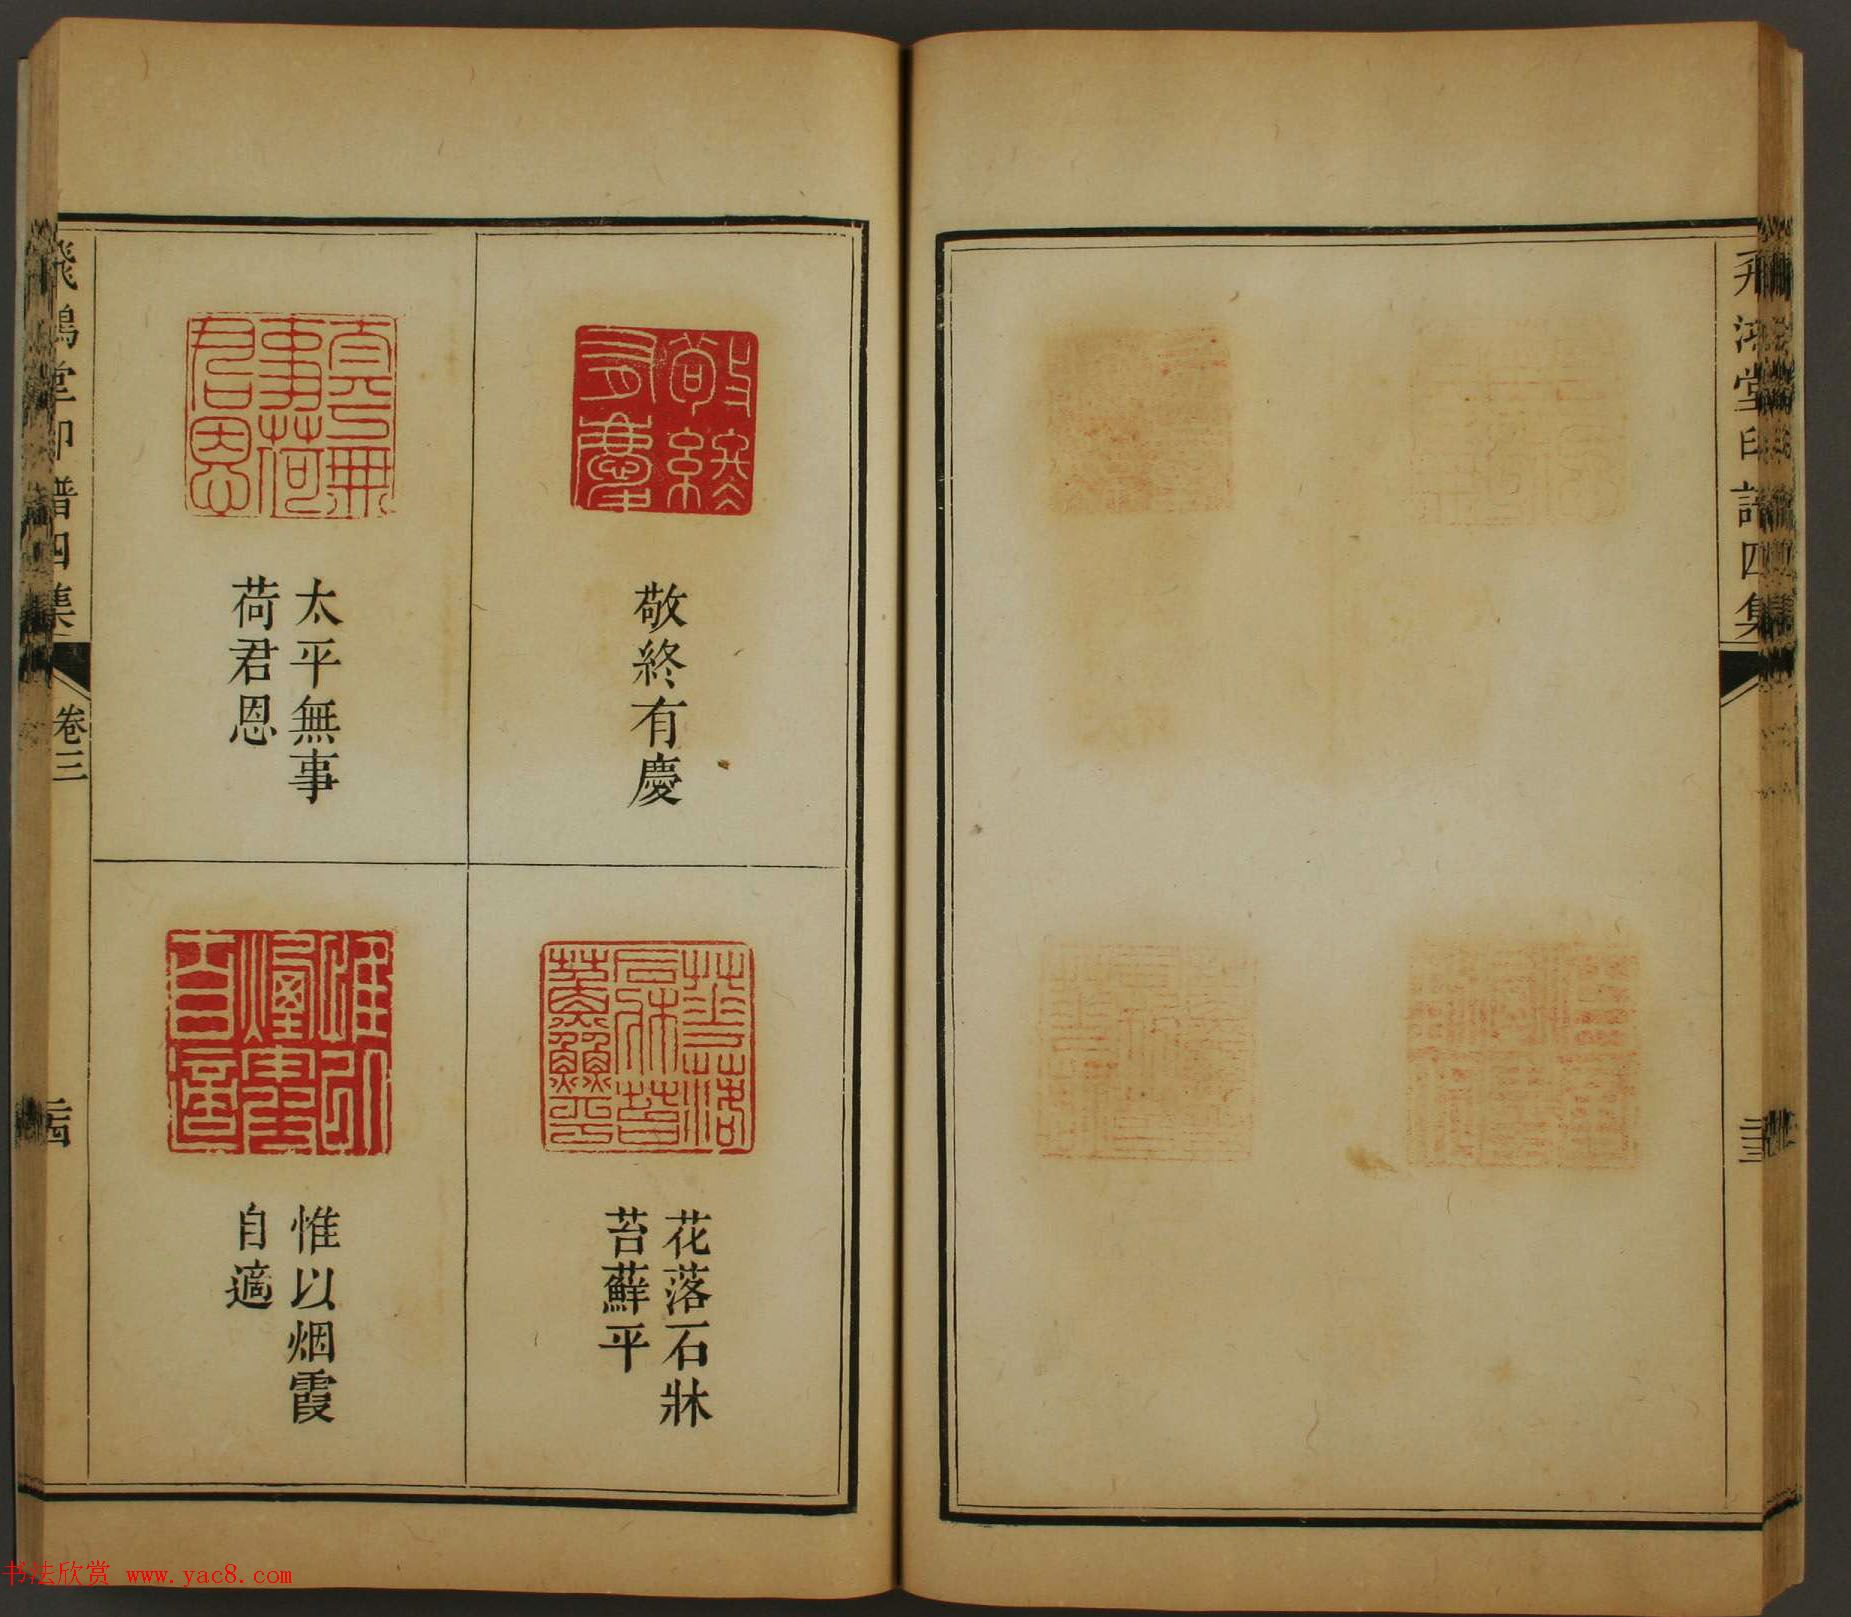 飛鴻堂印譜四集
三三
敬終有慶
太平無事
荷君恩
花落石牀
苔蘚平
惟以烟霞
自適
飛鴻堂印譜四集
卷三
二四
书法欣赏 www.yac8.com